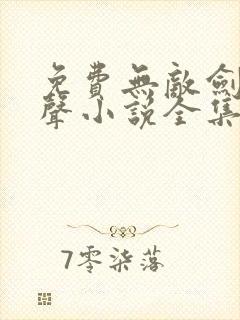 免費無敵劍
聲小說全集
7零柒落